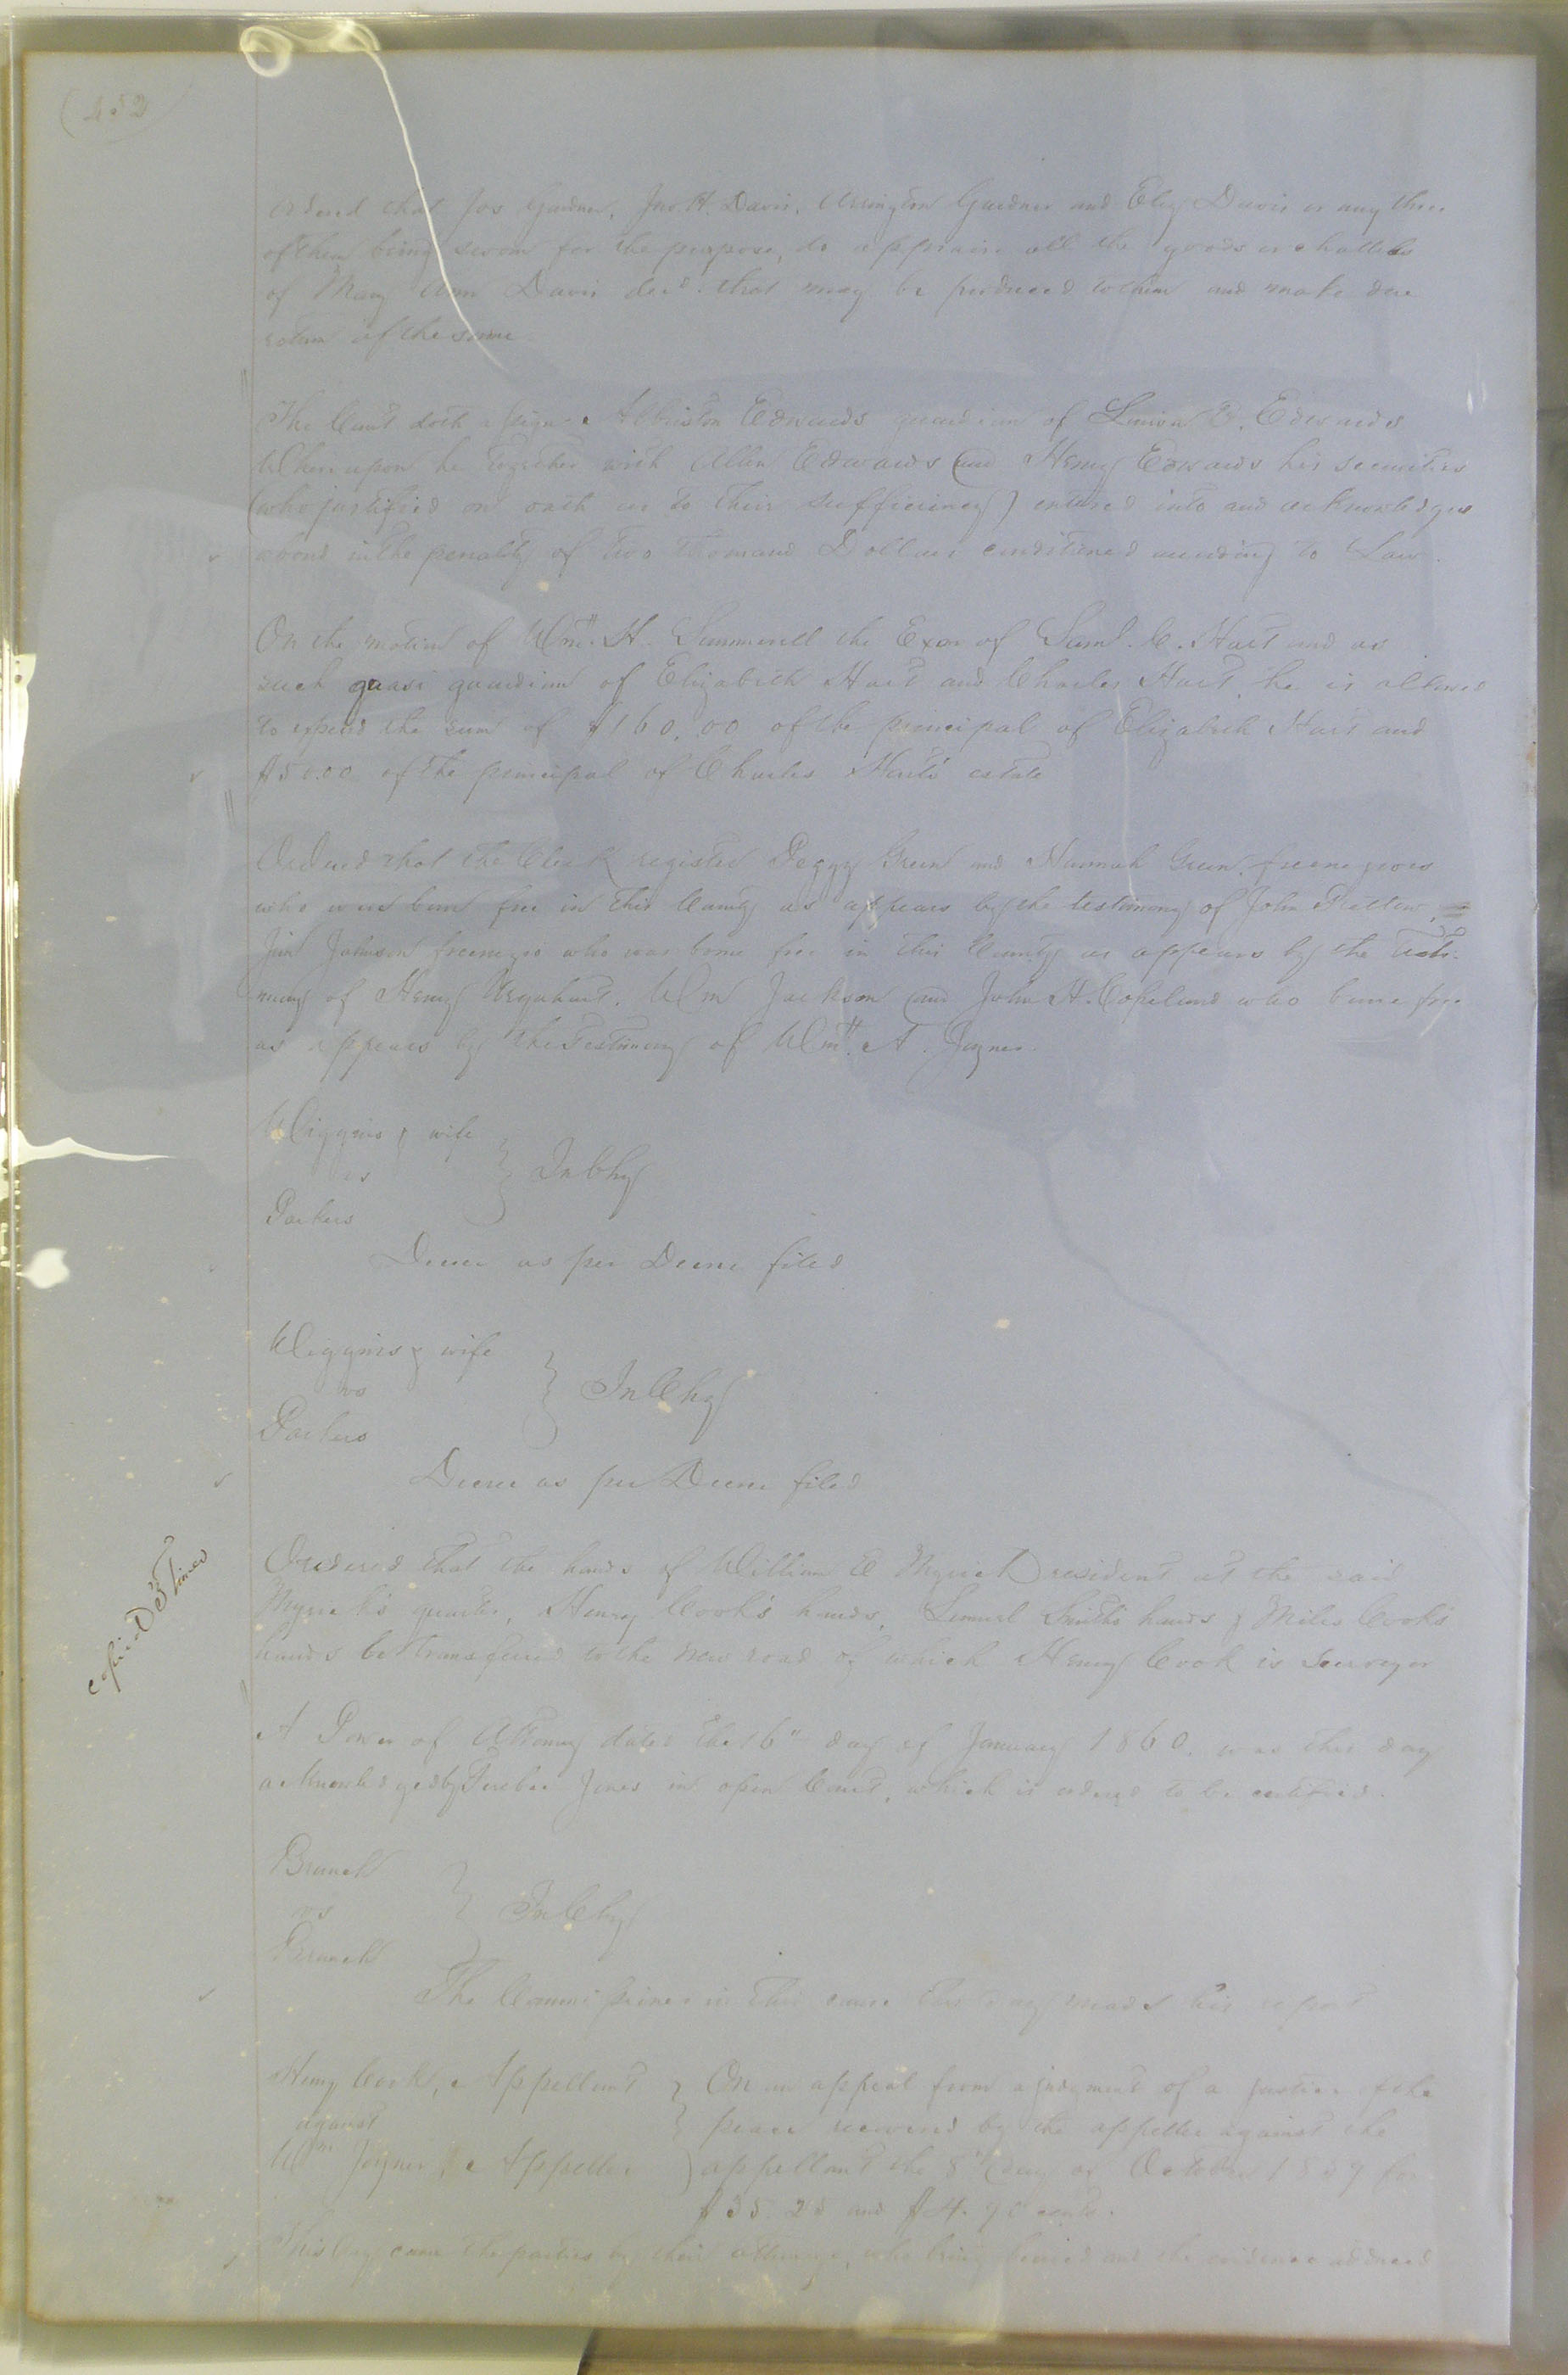 (252)
Ordered that Jos Gardner, Jno. H. Davis, Arrington Gardner and Eley Davis or any three
of them being sworn for the purpose, do appraise all the goods or chattels
of Mary Ann Davis decd. that may be produced to them and make due
return of the same.
The Court doth assign Albriston Edwards guardian of Louisa E. Edwards
Whereupon he together with Allen Edwards and Henry Edwards his securities
(who justified on oath as to their sufficiency) entered into and acknowledged
a bond in the penalty of two thousand Dollars conditioned according to Law.
On the motion of Wm. H. Summerell the Exor of Saml. C. Hart and as
such quasi guardian of Elizabeth Hart and Charles Hart, he is allowed
to expend the sum of $160.00 of the principal of Elizabeth Hart and
$50.00 of the principal of Charles Hart's estate
Ordered that the Clerk register Peggy Green and Hannah Green, free negroes
who were born free in this County as appears by the testimony of John Pretlow,
Jim Johnson free negro who was borne free in this County as appears by the testi-
mony of Henry Urquhart. Wm Jackson and John H. Copeland who borne free
as appears by the testimony of Wm. A. Joyner.
Wiggins & wife
vs } In Chy
Parkers
Decree as per Decree filed
Wiggins & wife
vs } In Chy
Parkers
Decree as per Decree filed
copied 3 Times
Ordered that the hands of William E Myrick resident at the said
Myrick's quarter, Henry Cook's hands, Lemuel Smith's hands & Miles Cook's
hands be transferred to the new road of which Henry Cook is Surveyor
A Power of Attorney dated the 16" day of January 1860. was this day
acknowledged by Ferebee Jones in open Court, which is ordered to be certified.
Barrett
vs } In Chy
Barrett
The Commissioner in this cause this day made his report
Henry Cook, Appellant } On an appeal from a judgment of a justice of the
against } peace recovered by the appellee against the
Wm Joyner, Appellee } appellant the 8th day of October 1859 for
$35.25 and $4.90 cents.
This day came the parties by their attorneys, who being heard and the evidence adduced